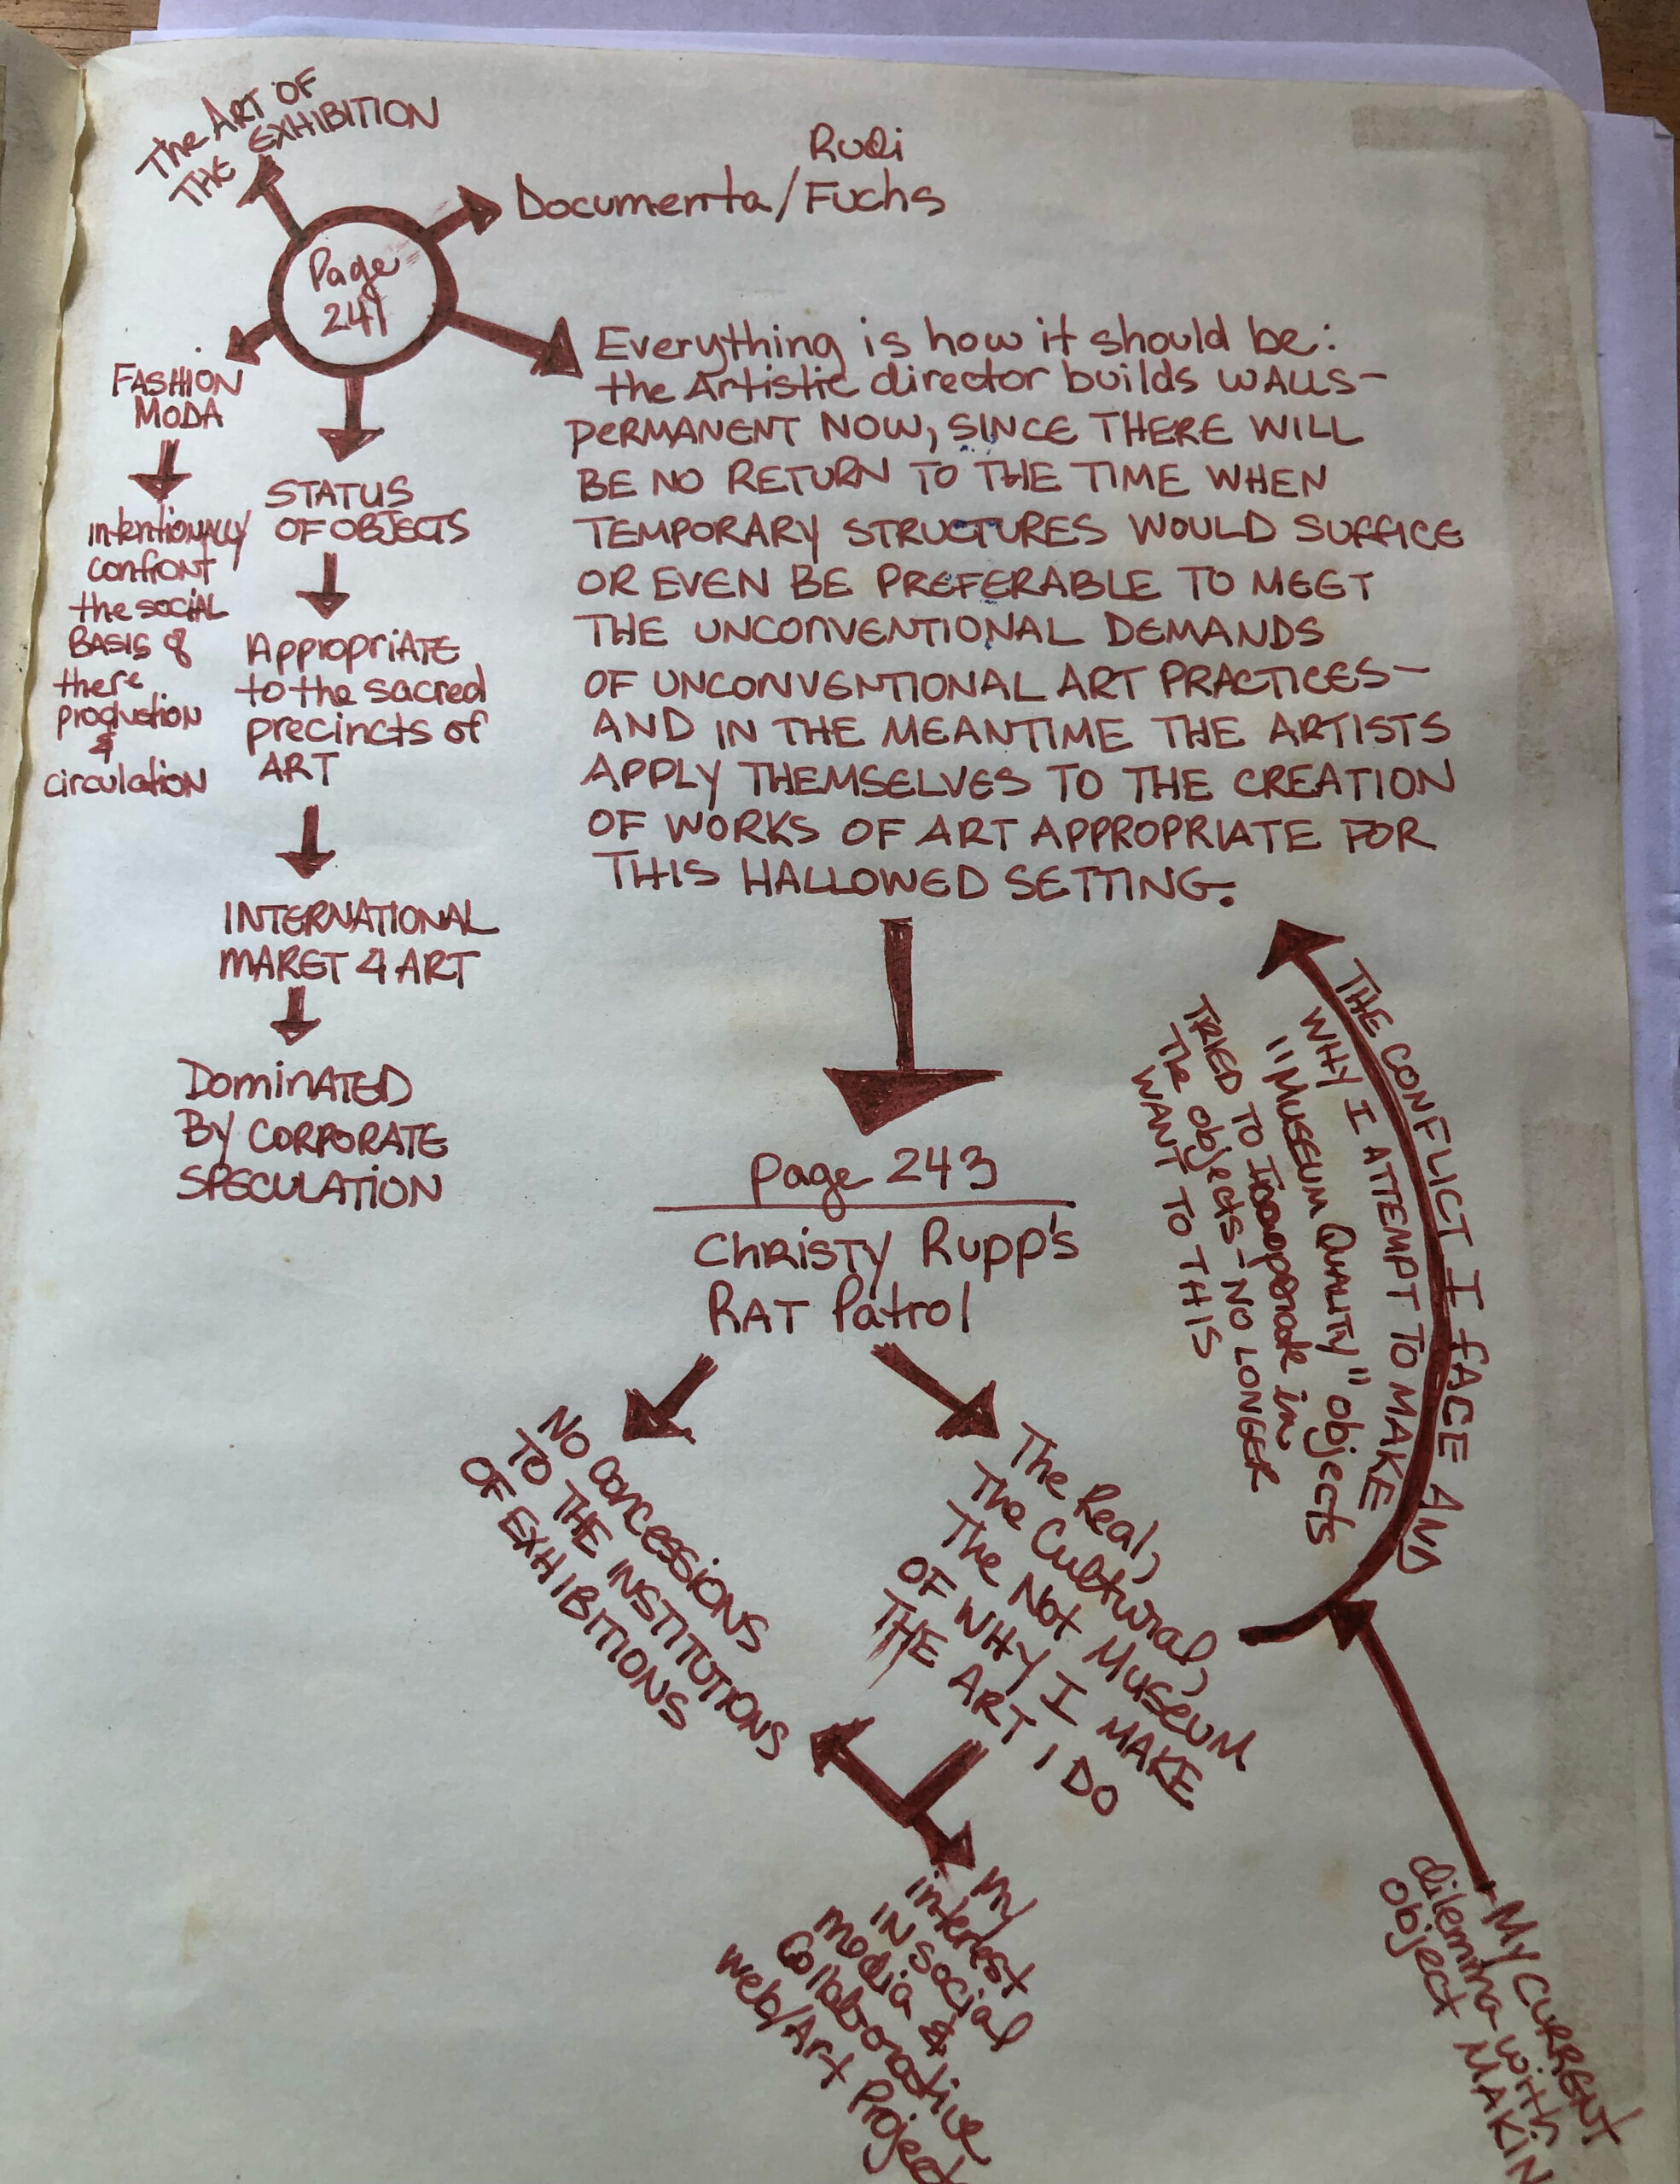 The ART OF
THE EXHIBITION
Rudi
Documenta/Fuchs
Page
241
Everything is how it should be:
the Artistic director builds WALLS-
PERMANENT NOW, SINCE THERE WILL
BE NO RETURN TO THE TIME WHEN
TEMPORARY STRUCTURES WOULD SUFFICE
OR EVEN BE PREFERABLE TO MEET
THE UNCONVENTIONAL DEMANDS
OF UNCONVENTIONAL ART PRACTICES-
AND IN THE MEANTIME THE ARTISTS
APPLY THEMSELVES TO THE CREATION
OF WORKS OF ART APPROPRIATE FOR
THIS HALLOWED SETTING.
FASHION
MODA
intentionally
confront
the social
BASIS of
there
production
&
circulation
STATUS
OF OBJECTS
Appropriate
to the sacred
precincts of
ART
INTERNATIONAL
MARET 4 ART
Dominated
By CORPORATE
SPECULATION
page 243
Christy Rupp's
RAT Patrol
NO concessions
TO THE INSTITUTIONS
OF EXHIBITIONS
The Real,
The Cultural,
The Not Museum
OF WHY I MAKE
THE ART I DO
My
interest
IN social
media &
Collaborative
web/Art Project
THE CONFLICT I FACE AND
WHY I ATTEMPT TO MAKE
"MUSEUM QUALITY" objects
TRIED TO in
The objects - NO LONGER
WANT TO THIS
My CURRENT
dilemma with
object MAKIN